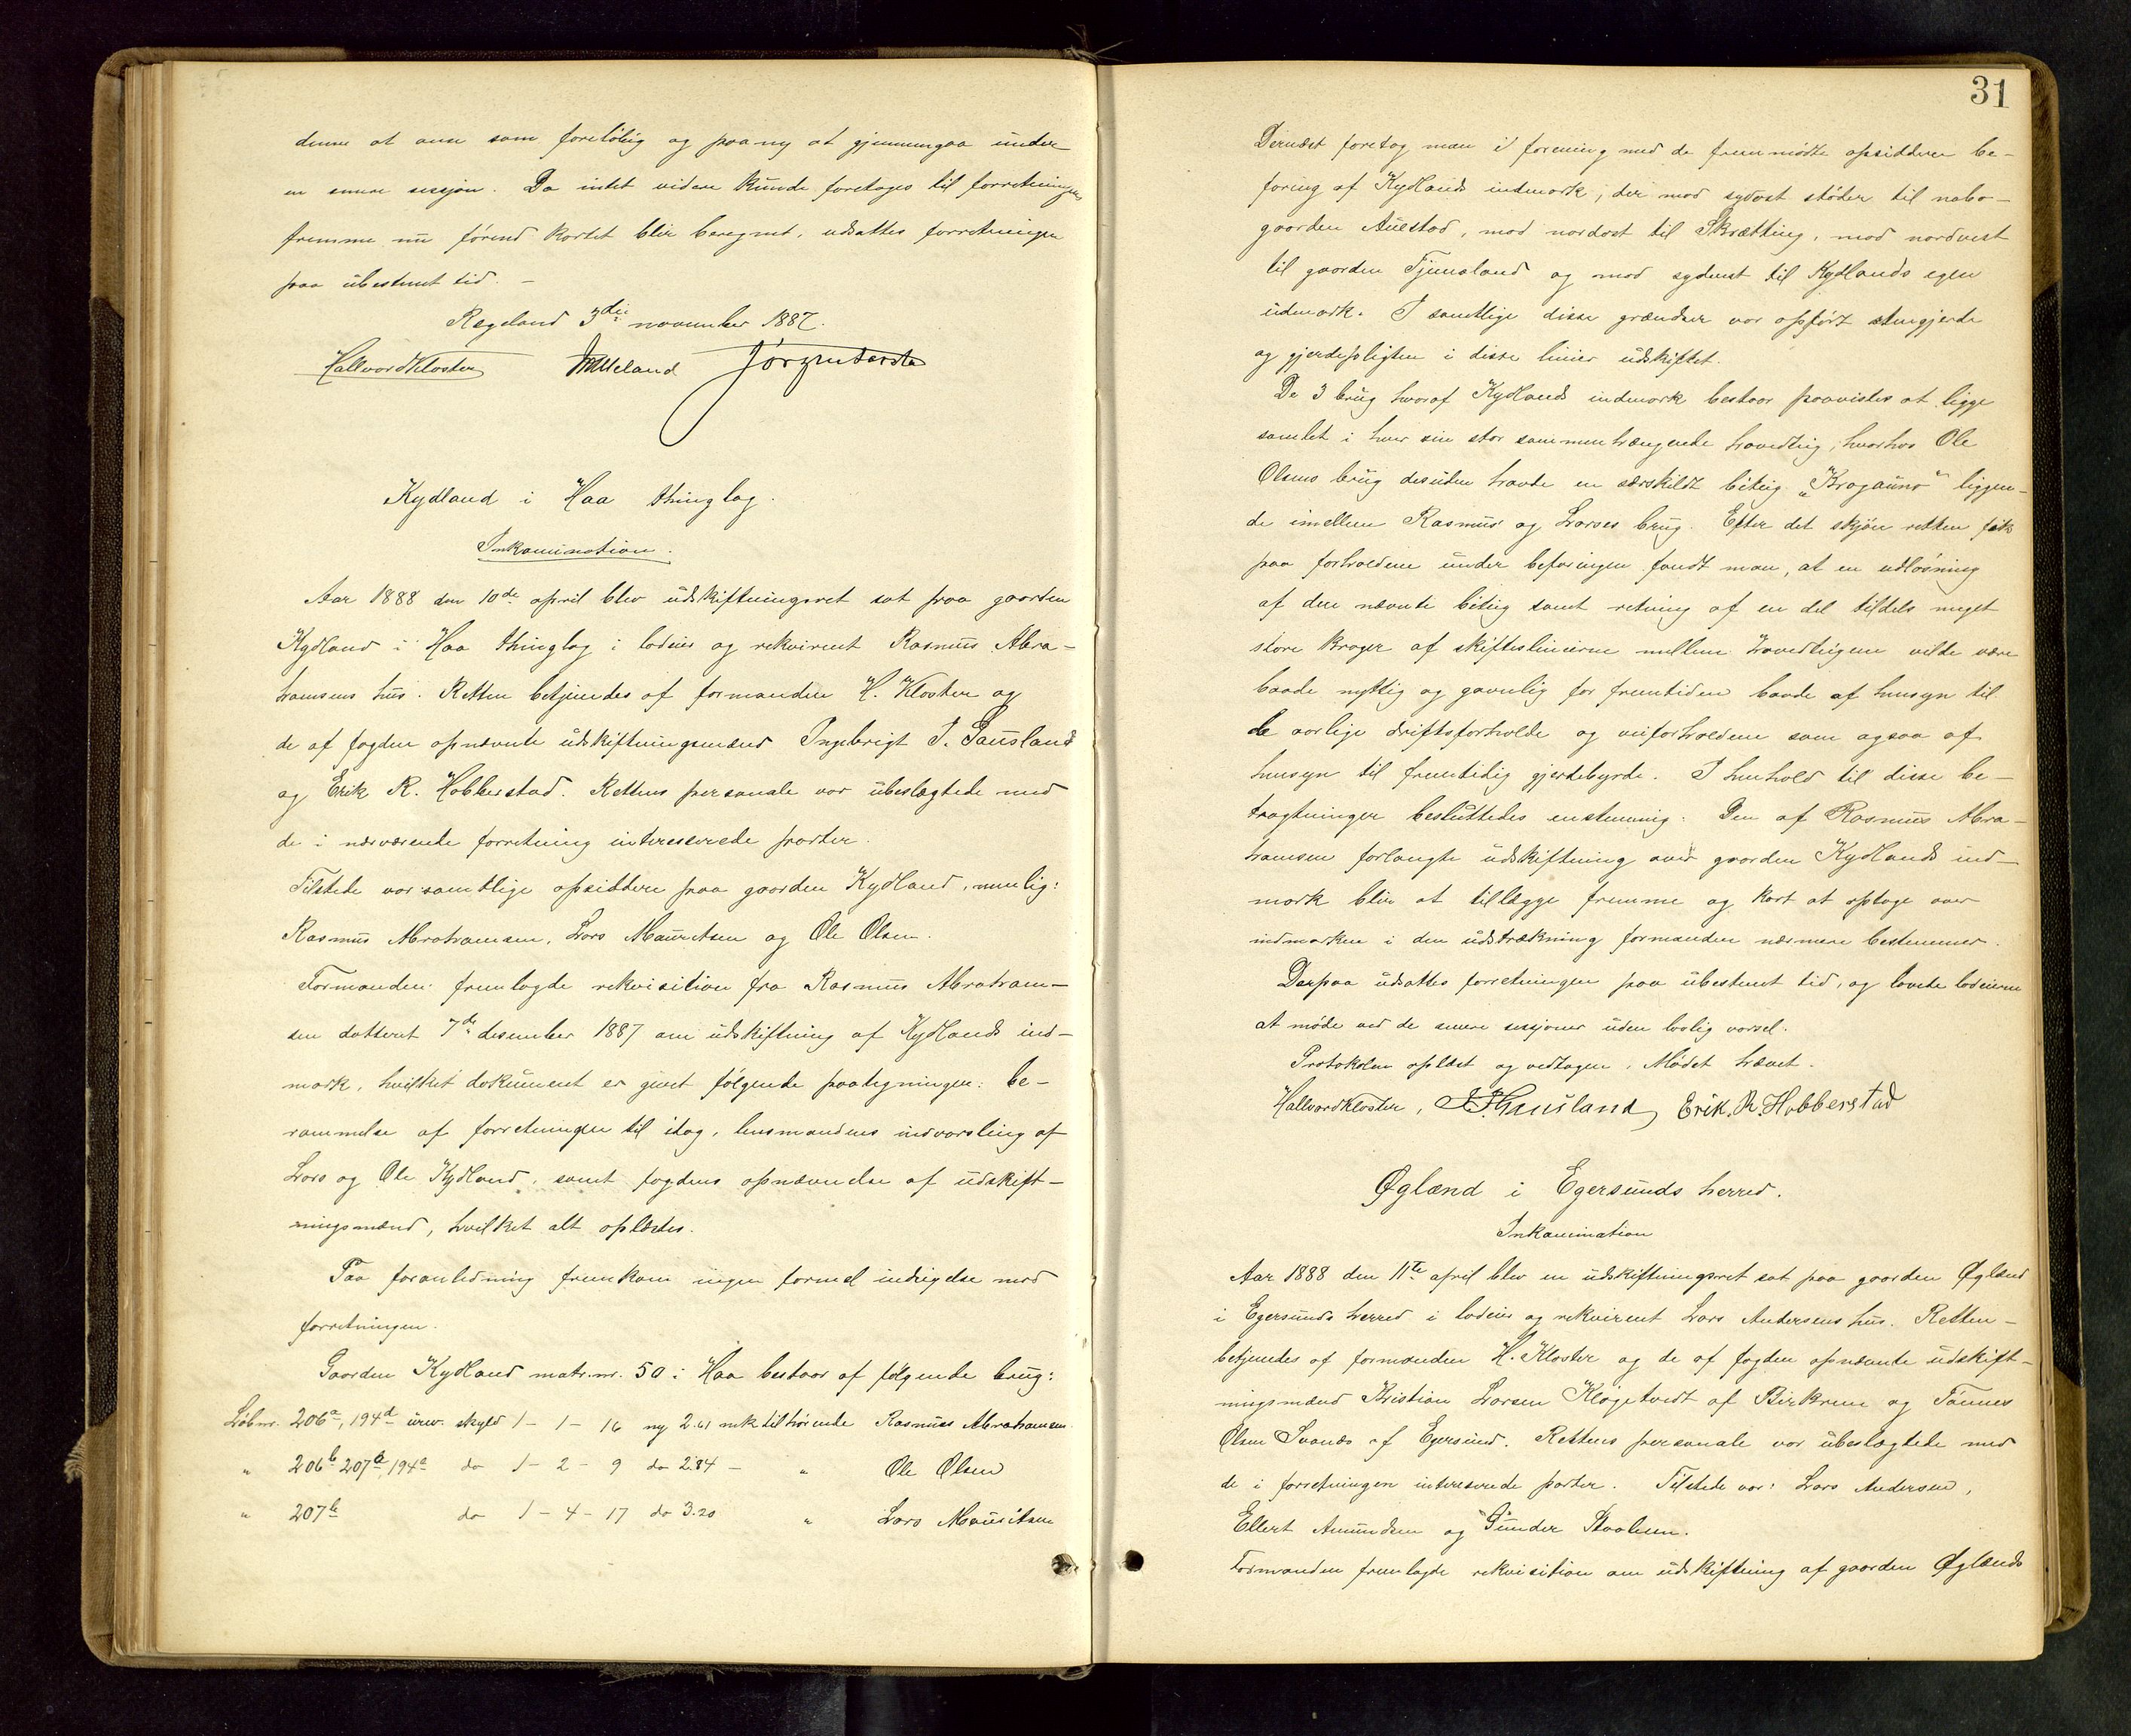 denne at anse som foreløbig og paany at gjennemgaa under
en senere sesjon. Da intet videre kunde foretages til forretningens
fremme nu førend kartet blir beregnet, udsattes forretningen
paa ubestemt tid. –
Røgeland 3die november 1887.
Hallvard Kloster
Kydland i Haa thinglag.
Inkamination.
Aar 1888 den 10de april blev udskiftningsret sat paa gaarden
Kydland i Haa thinglag i lodeier og rekvirent Rasmus Abra-
hamsens hus. Retten betjentes af formanden H. Kloster og
de af fogden opnævnte udskiftningsmænd Ingebrigt T. Gausland
og Erik R. Hobberstad. Rettens personale var ubeslægtede med
de i nærværende forretning interesserede parter.
Tilstede var samtlige opsiddere paa gaarden Kydland, nemlig:
Rasmus Abrahamsen, Lars Mauritsen og Ole Olsen.
Formanden fremlagde rekvisition fra Rasmus Abraham-
sen datteret 7de desember 1887 om udskiftning af Kydlands ind-
mark, hvilket dokument er givet følgende paategninger: be-
rammelse af forretningen til idag, lensmandens indvarsling af
Lars og Ole Kydland, samt fogdens opnævnelse af udskift-
ningsmænd, hvilket alt oplæstes.
Paa foranledning fremkom ingen formel indsigelse mod
forretningen.
Gaarden Kydland matr. nr. 50 i Haa bestaar af følgende brug:
Løbnr. 206a, 194d urev. skyld 1 – 1 – 16 ny 2.61 mrk tilhørende Rasmus Abrahamsen
" 206b 207a, 194a do 1 – 2 – 9 do 2.84 – " Ole Olsen
" 207b do 1 – 4 – 17 do 3.20 " Lars Mauritsen
31
Dernæst foretog man i forening med de fremmødte opsiddere be-
faring af Kydlands indmark, der mod sydost støder til nabo-
gaarden Auestad, mod nordost til Skrætting, mod nordvest
til gaarden Tjemsland og mod sydvest til Kydlands egen
udmark. I samtlige disse grændser var opført stengjerde
og gjerdepligten i disse linier udskiftet.
De 3 brug hvoraf Kydlands indmark bestaar paavistes at ligge
samlet i hver sin stor sammenhængende hovedteig, hvorhos Ole
Olsens brug desuden havde en særskildt biteig „Krogauno" liggen-
de imellem Rasmus og Larses brug. Efter det skjøn retten fik
paa forholdene under befaringen fandt man, at en udløsning
af den nævnte biteig samt retning af en del tildels meget
store kroger af skifteslinierne mellem hovedteigene vilde være
baade nyttig og gavnlig for fremtiden baade af hensyn til
de aarlige driftsforholde og veiforholdene som ogsaa af
hensyn til fremtidig gjerdebyrde. I henhold til disse be-
tragtninger besluttedes enstemmig: Den af Rasmus Abra-
hamsen forlangte udskiftning over gaarden Kydlands ind-
mark blir at tillægge fremme og kart at optage over
indmarken i den udstrækning formanden nærmere bestemmer.
Derpaa udsattes forretningen paa ubestemt tid, og lovede lodeierne
at møde ved de senere sesjoner uden lovlig varsel.
Protokolen oplæst og vedtagen. Mødet hævet.
Hallvard Kloster, I T Gausland, Erik. R. Hobberstad
Øglænd i Egersunds herred.
Inkamination
Aar 1888 den 11te april blev en udskiftningsret sat paa gaarden Øglænd
i Egersunds herred i lodeier og rekvirent Lars Andersens hus. Retten –
betjentes af formanden H. Kloster og de af fogden opnævnte udskift-
ningsmænd Kristian Larsen Kløgetvedt af Birkrem og Tønnes
Olsen Svanæs af Egersund. Rettens personale var ubeslægtede med
de i forretningen interesserede parter. Tilstede var: Lars Andersen,
Ellert Amundsen og Gunder Staalesen.
Formanden fremlagde rekvisition om udskiftning af gaarden Øglænds